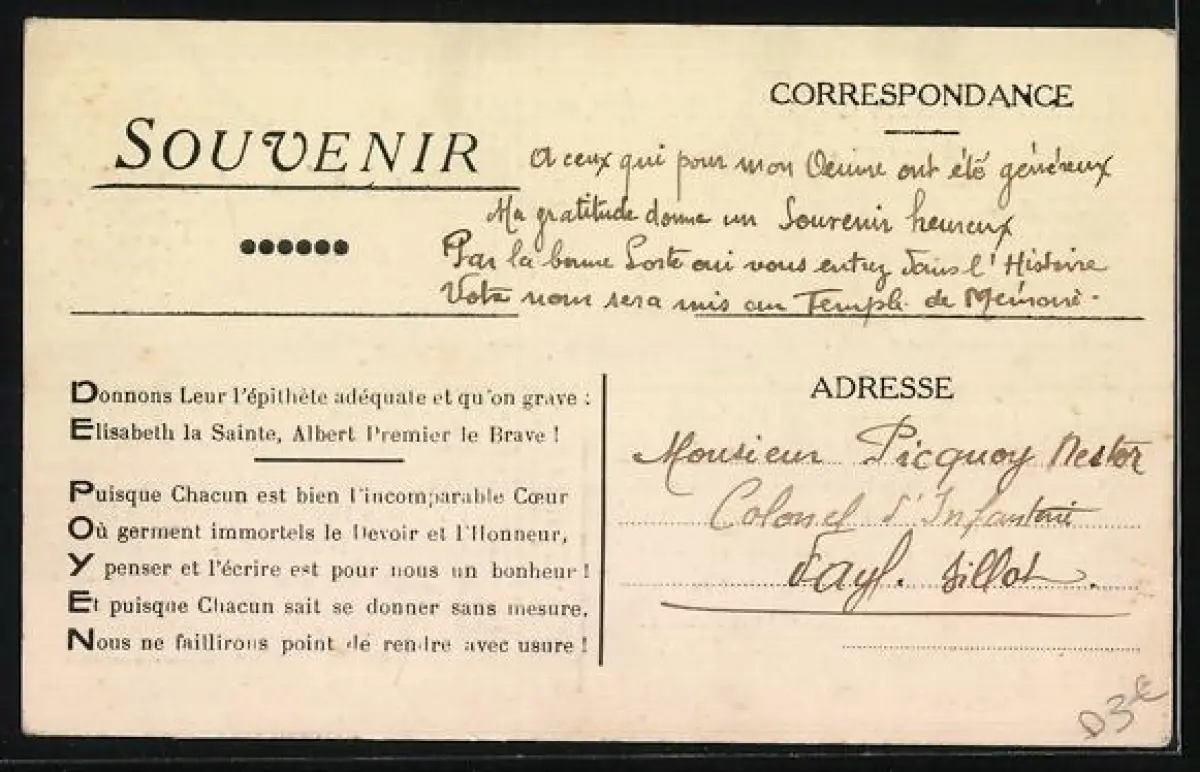 SOUVENIR
CORRESPONDANCE
A ceux qui pour mon Oeuvre ont été généreux
Ma gratitude donne un Souvenir heureux
Par la bonne Poste oui vous entrez dans l'Histoire
Votre nom sera mis au Temple de Mémoire.
Donnons Leur l'épithète adéquate et qu'on grave :
Elisabeth la Sainte, Albert Premier le Brave !
Puisque Chacun est bien l'incomparable Cœur
Où germent immortels le Devoir et l'Honneur,
Y penser et l'écrire est pour nous un bonheur !
Et puisque Chacun sait se donner sans mesure,
Nous ne faillirons point de rendre avec usure !
ADRESSE
Monsieur Picquoy Nestor
Colonel d'Infanterie
Fayl. Billot.
03€